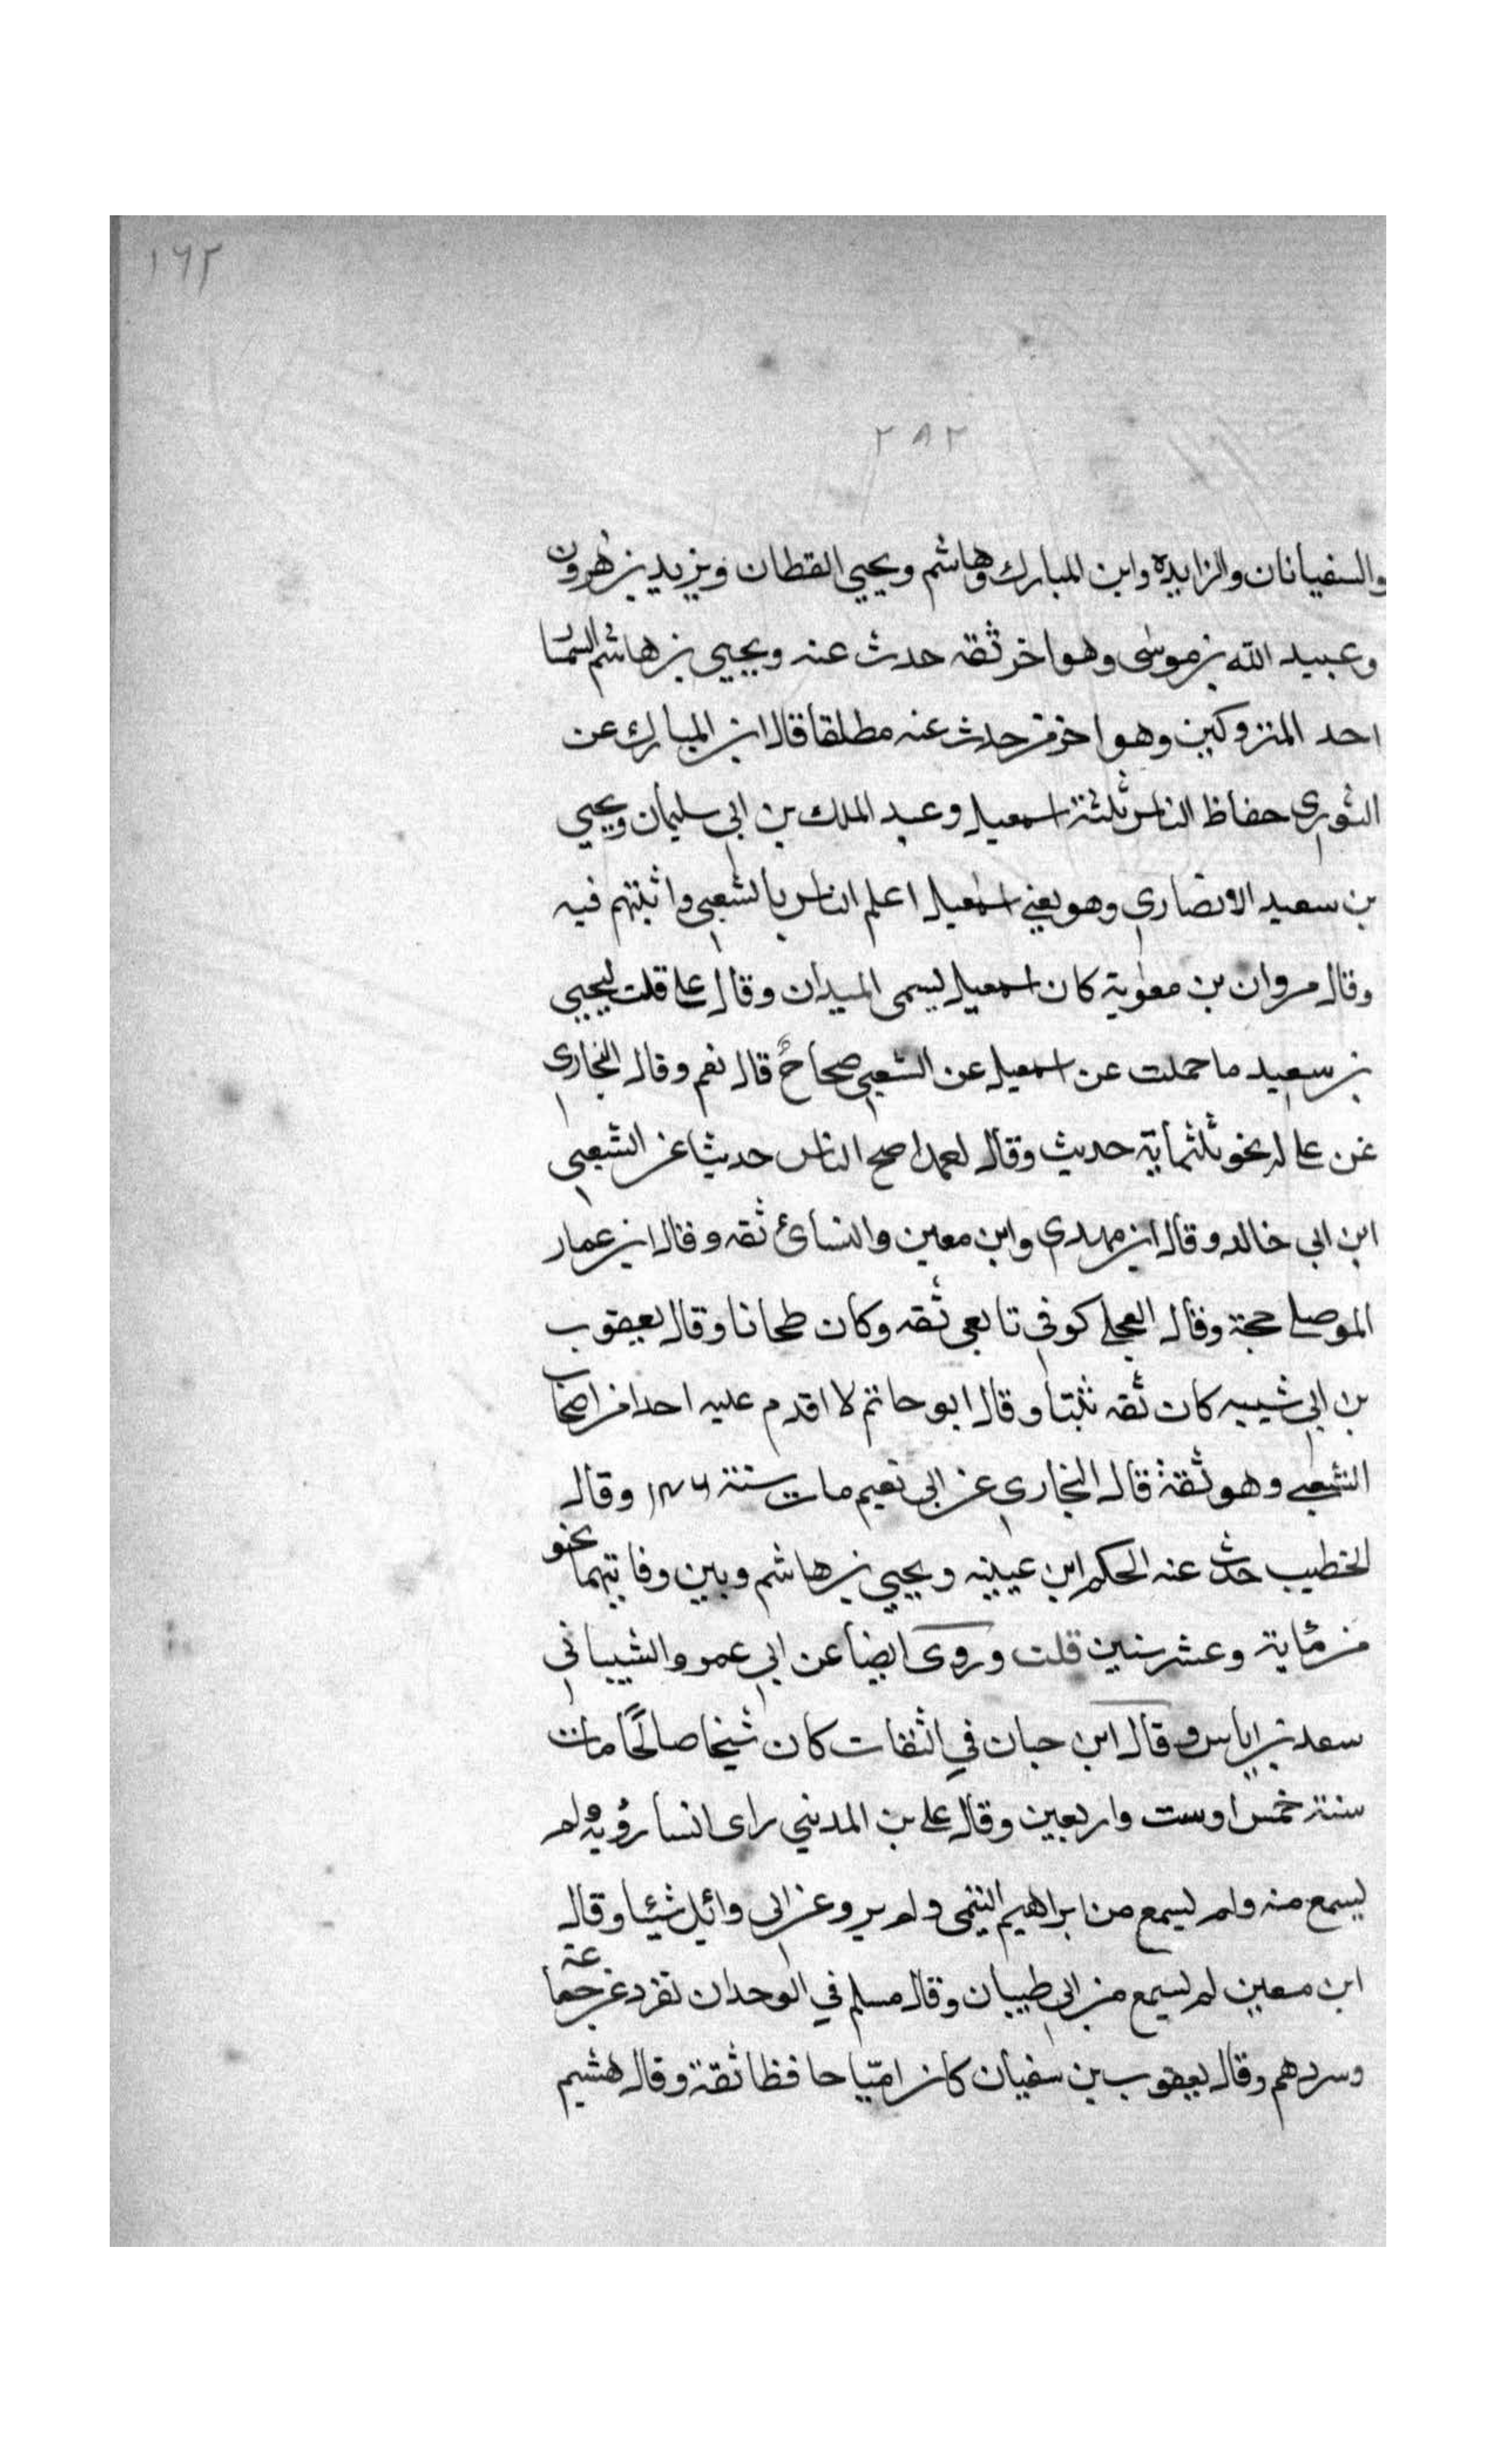 ١٦٢
٢٨٢
والسفيانان والزايده وابن المبارك وهاشم ويحيي القطان ويزيد بن هرون
وعبيد الله بن موسى وهو اخر ثقه حدث عنه ويحيي بن هاشم السمسا
احد المتروكين وهو اخر من حدث عنه مطلقا قال ابن المبارك عن
الثوري حفاظ الناس ثلثة اسمعيل وعبد الملك بن ابي سليمان ويحيي
بن سعيد الانصاري وهو يعني اسمعيل اعلم الناس بالشعبي واثبتهم فيه
وقال مروان بن معوية كان اسمعيل يسمى الميزان وقال علي قلت ليحيي
بن سعيد ما حملت عن اسمعيل عن الشعبي صحاح قال نعم وقال البخاري
عن علي له نحو ثلثماية حديث وقال احمد اصح الناس حديثا عن الشعبي
ابن ابي خالد وقال ابن مهدي وابن معين والنسائ ثقه وقال ابن عمار
الموصلي حجة وقال العجلي كوفي تابعي ثقه وكان طحانا وقال يعقوب
بن ابي شيبه كان ثقه ثبتا وقال ابو حاتم لا اقدم عليه احدا من اصحاب
الشعبي وهو ثقة قال البخاري عن ابي نعيم مات سنة ١٤٦ وقال
الخطيب حدث عنه الحكم ابن عيينه ويحيي بن هاشم وبين وفاتيهما نحو
من مئاية وعشر سنين قلت وروى ايضا عن ابي عمرو الشيباني
سعد بن اياس وقال ابن حبان في الثقات كان شيخا صالحًا مات
سنة خمس او ست واربعين وقال علي بن المديني راى انسا رؤية ولم
يسمع منه ولم يسمع من ابراهيم التيمي ولم يرو عن ابي وائل شيئا وقال
ابن معين لم يسمع من ابي ظبيان وقال مسلم في الوحدان تفرد عن جماعة
وسردهم وقال يعقوب بن سفيان كان اميّا حافظا ثقة وقال هشيم